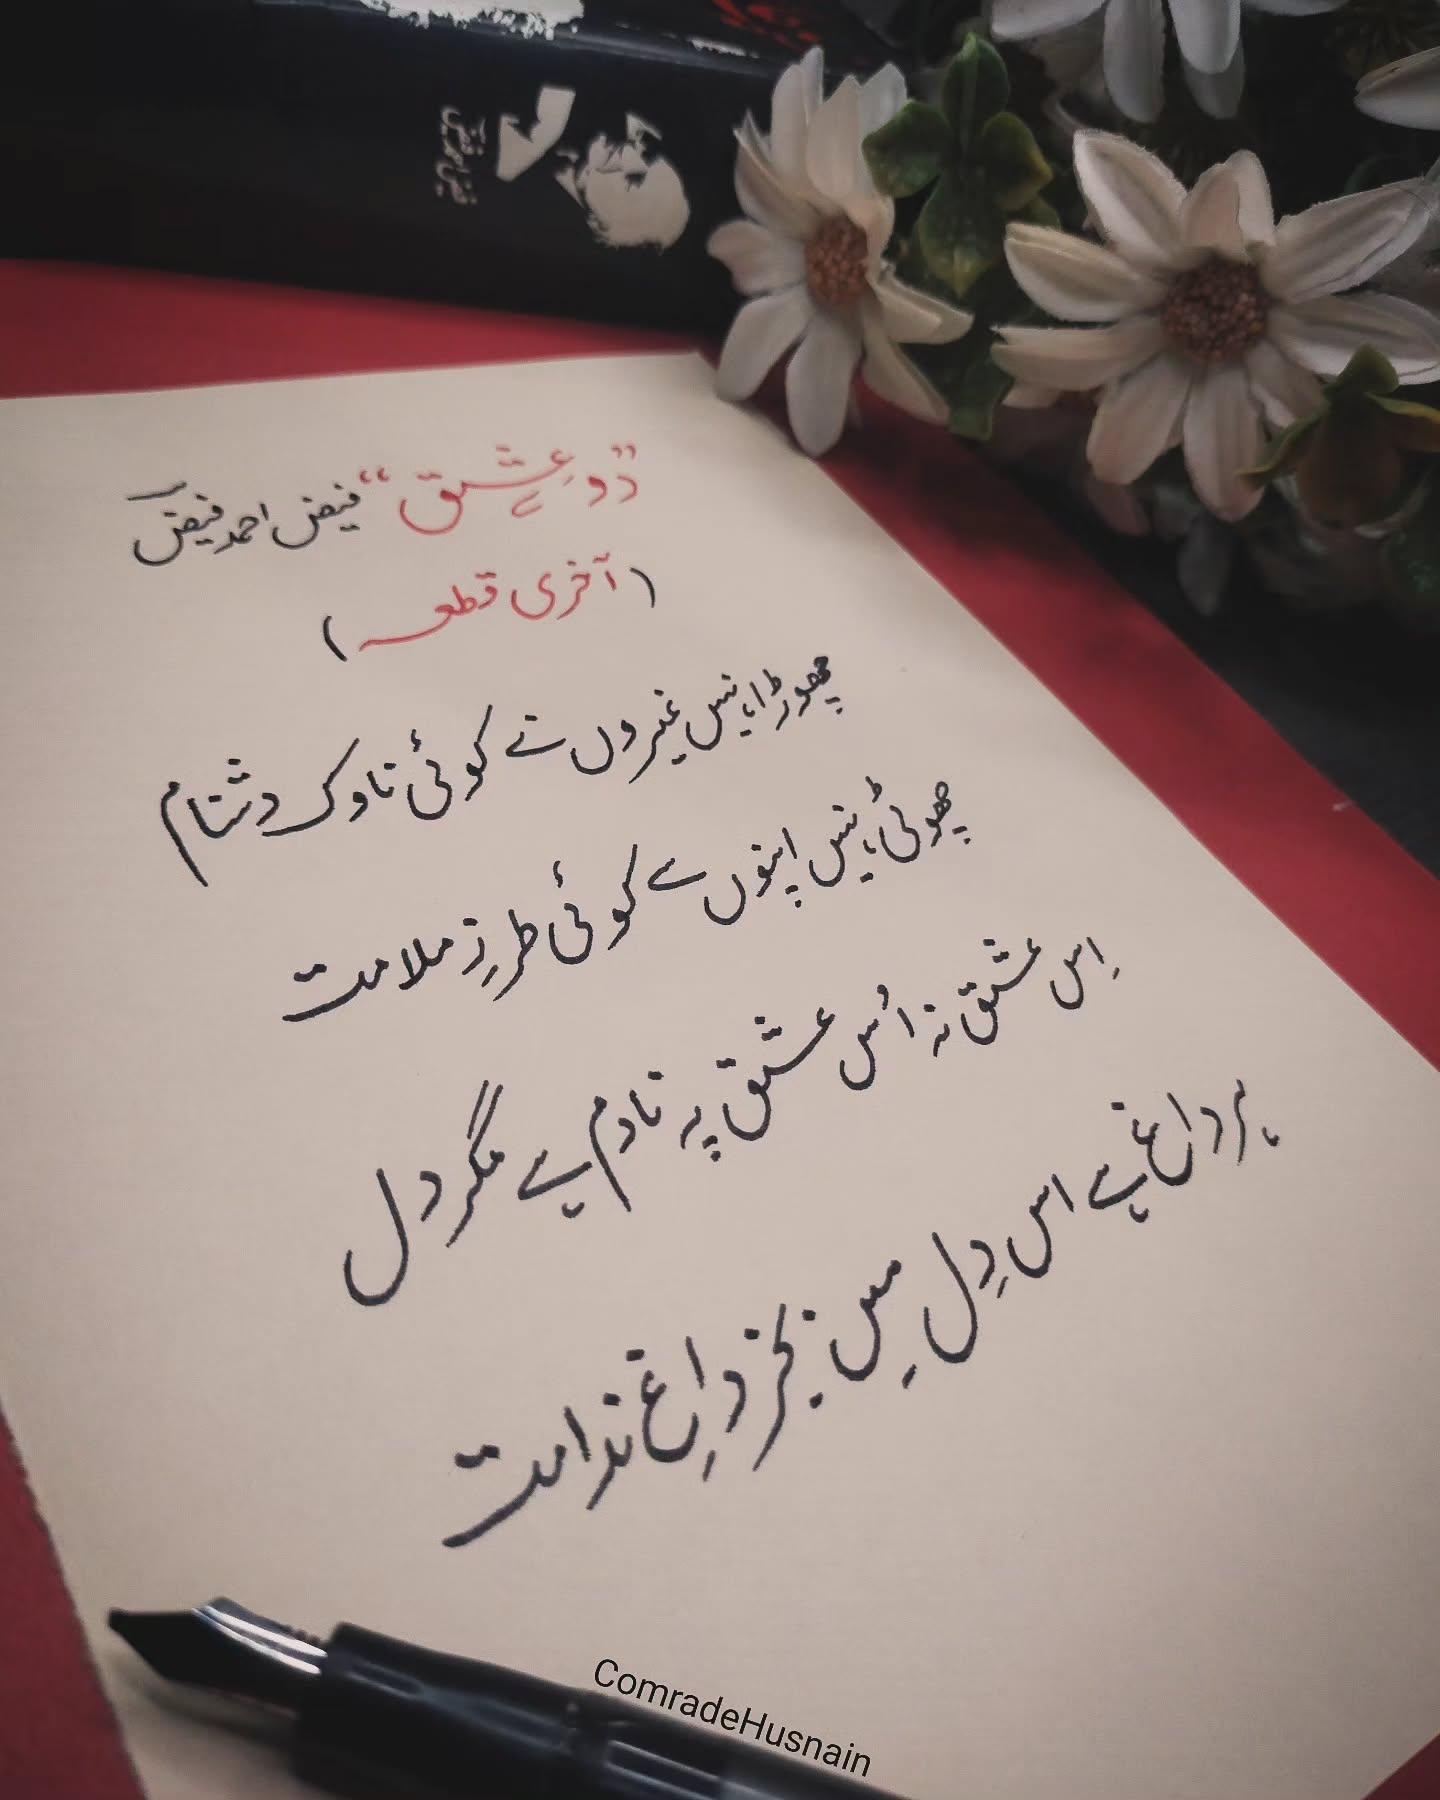 ”دو عِشق“ فیض احمد فیضؔ
(آخری قطعہ)
چھوڑا نہیں غیروں نے کوئی ناوک دشنام
چھوٹی نہیں اپنوں سے کوئی طرزِ ملامت
اِس عشق نہ اُس عشق پہ نادم ہے مگر دل
ہر داغ ہے اس دِل میں بجز داغِ ندامت
ComradeHusnain